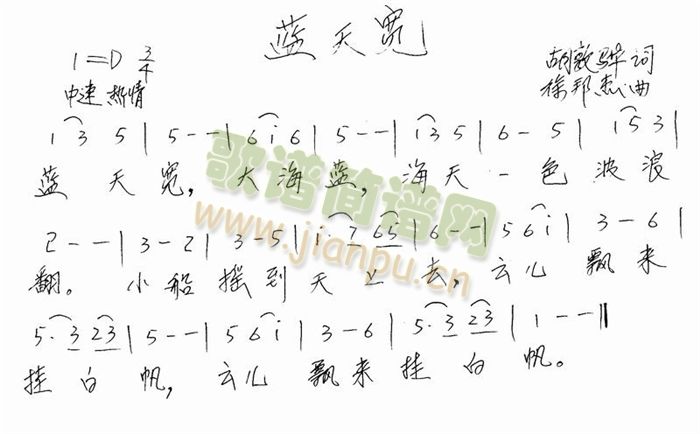 蓝天宽
1=D 3/4
胡敦骅词
中速 热情
徐邦杰曲
1 3 5 | 5 - - | 6 i 6 | 5 - - | i 3 5 | 6 - 5 | 1 5 3 |
蓝 天 宽, 大海蓝, 海天一色波浪
2 - - | 3 - 2 | 3 - 5 | i. 7 6 5 | 6 - - | 5 6 i | 3 - 6 |
翻。小船摇到天上去, 云儿飘来
5. 3 2 3 | 5 - - | 5 6 i | 3 - 6 | 5. 3 2 3 | 1 - - ‖
挂白帆, 云儿飘来挂白帆。
歌谱简谱网
www.jianpu.cn